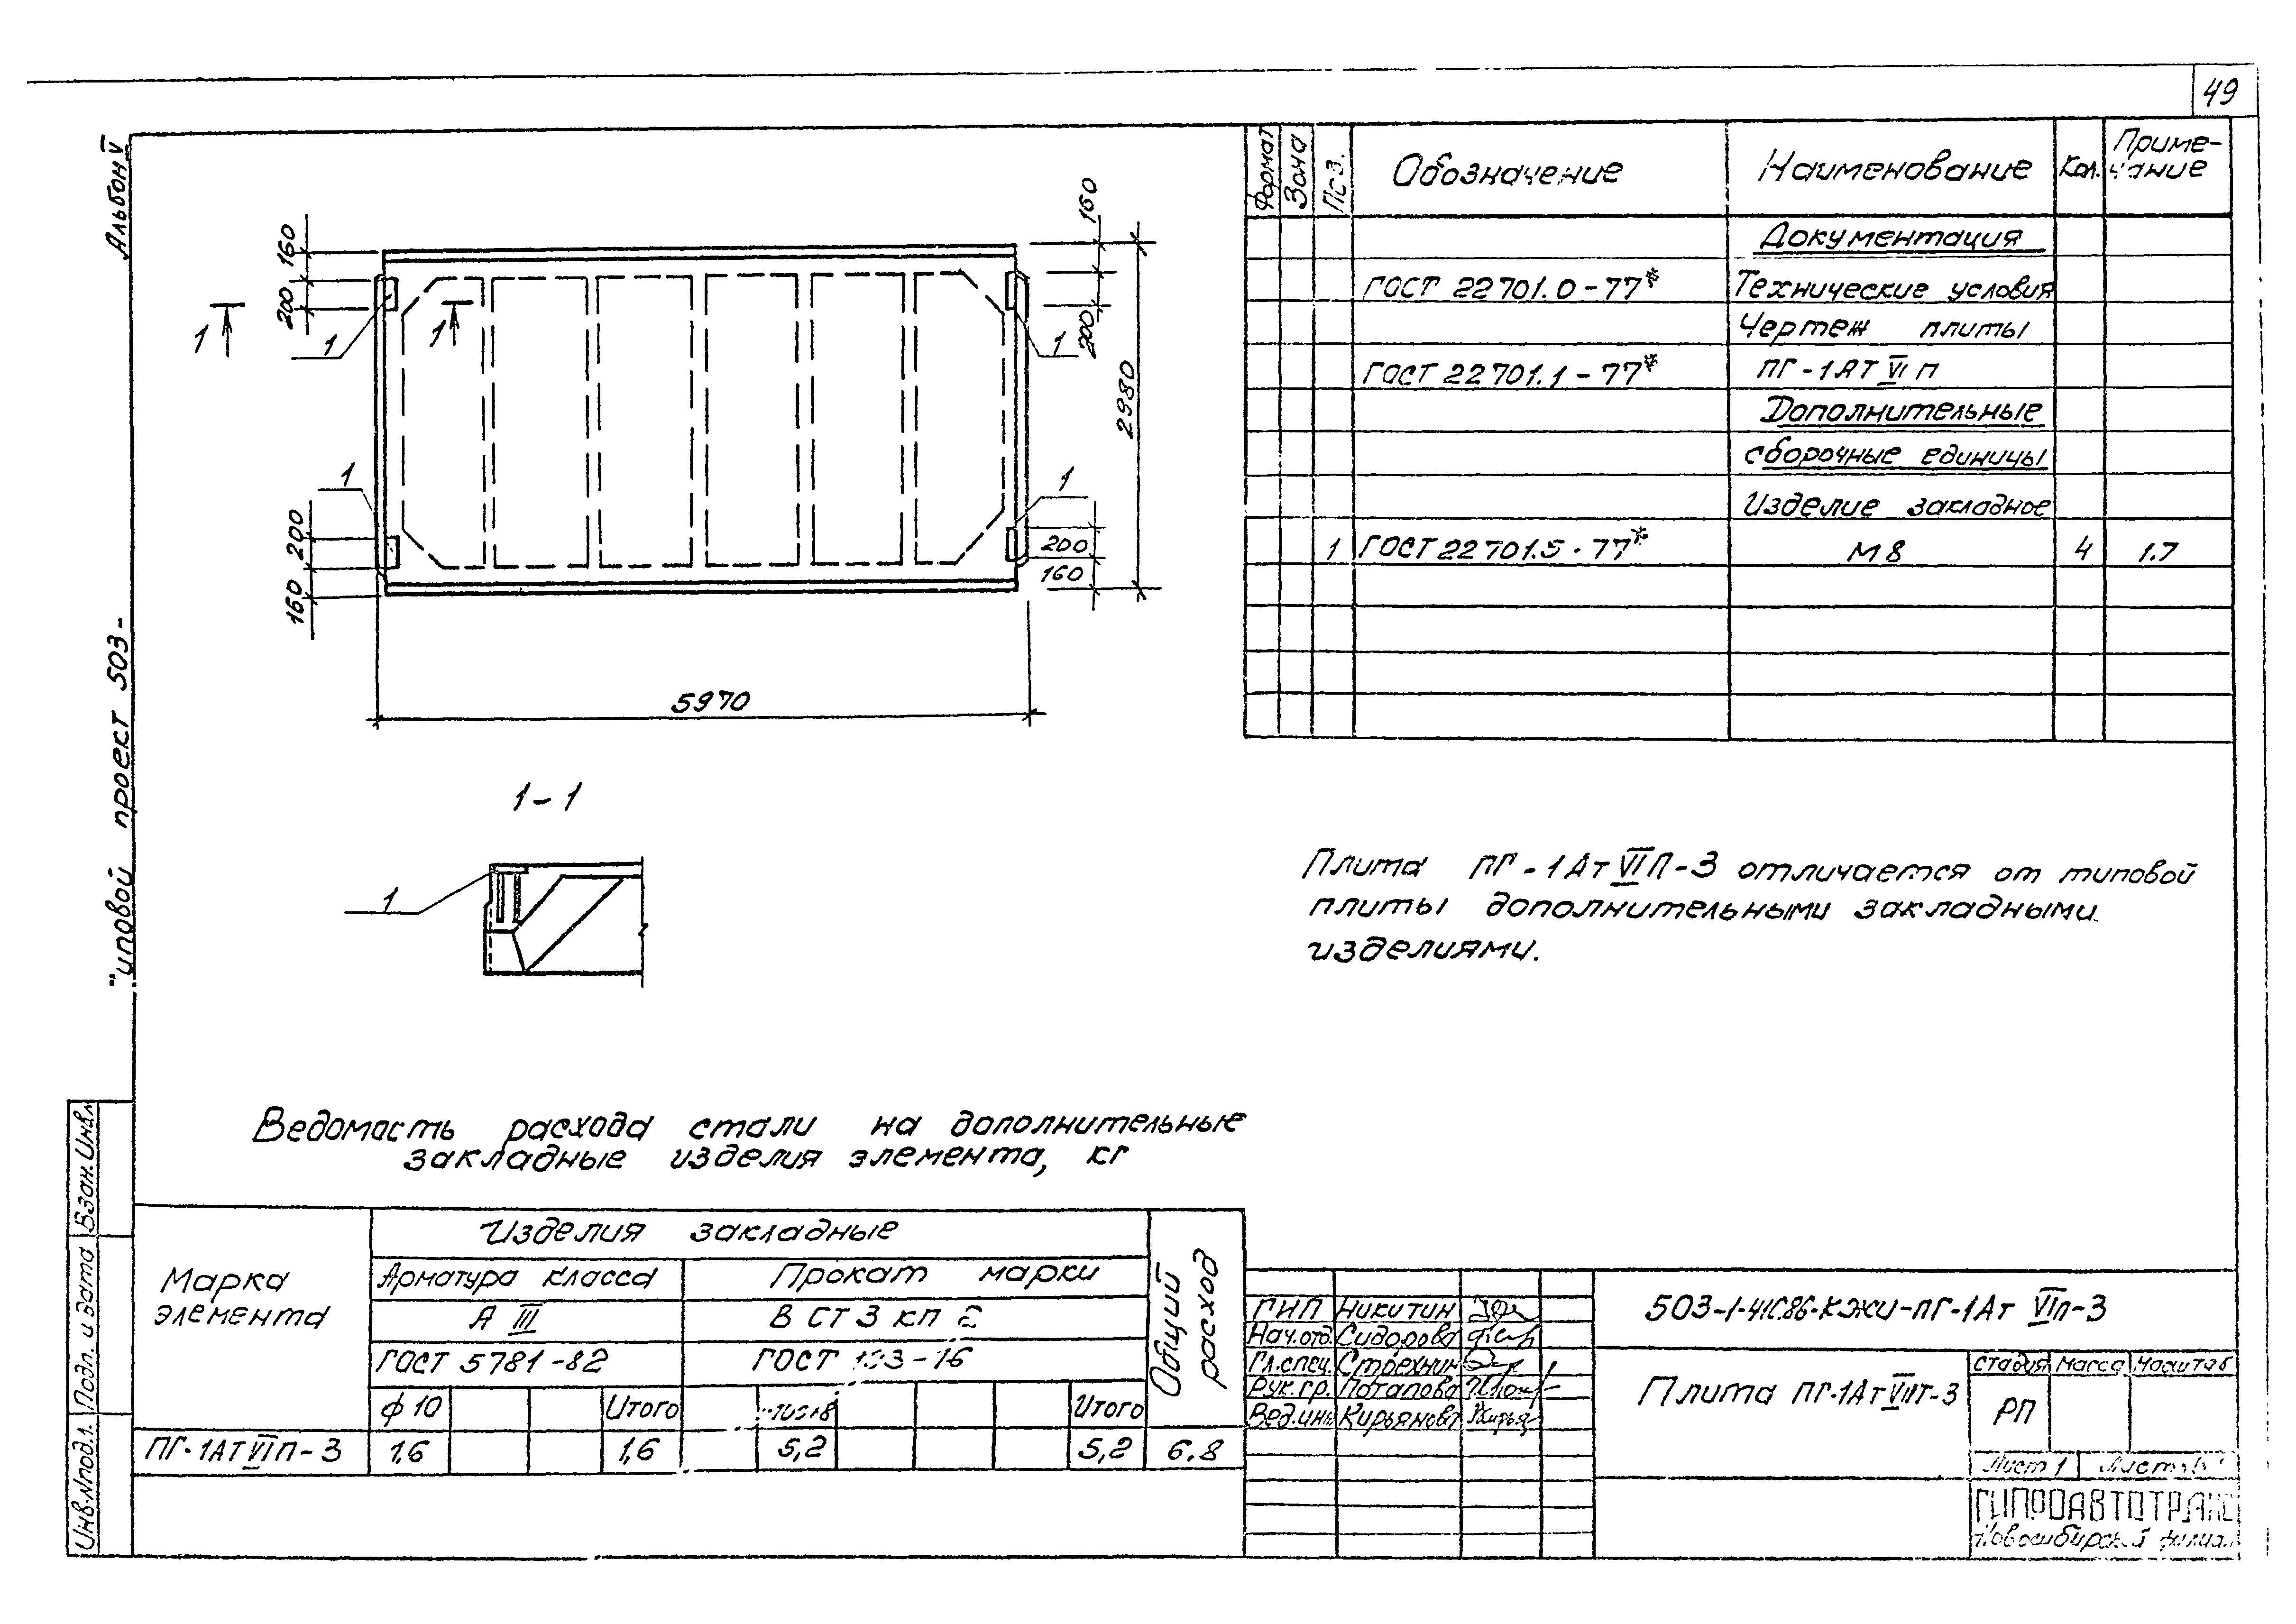 49
Альбом V
Типовой проект 503-
160
200
1
1
1
1
200
160
160
200
1
2980
1
200
160
5970
1-1
1
Формат Зона Поз. Обозначение Наименование Кол. Приме-
чание
Документация
ГОСТ 22701.0-77* Технические условия
Чертеж плиты
ГОСТ 22701.1-77* ПГ-1АТ VI П
Дополнительные
сборочные единицы
Изделие закладное
1 ГОСТ 22701.5-77* М8 4 1.7
Плита ПГ-1Ат VI П-3 отличается от типовой
плиты дополнительными закладными
изделиями.
Ведомость расхода стали на дополнительные
закладные изделия элемента, кг
Марка
элемента
Изделия закладные
Общий
расход
Арматура класса Прокат марки
А III В СТ 3 кп 2
ГОСТ 5781-82 ГОСТ 103-76
ф10 Итого Итого
ПГ-1АТ VI П-3 1,6 1,6 5,2 5,2 6.8
Взам.Инв.№
Подп. и дата
Инв.№подл.
ГИП Никитин
Нач.отд. Сидорова
Гл.спец. Стрехнин
Рук.гр. Потапова
Вед.инж Кирьянова
503-1-41С.86-КЖИ-ПГ-1Ат VI п-3
Плита ПГ-1Ат VI П-3
стадия масса масштаб
РП
Лист 1
ГИПРОАВТОТРАНС
Новосибирский филиал